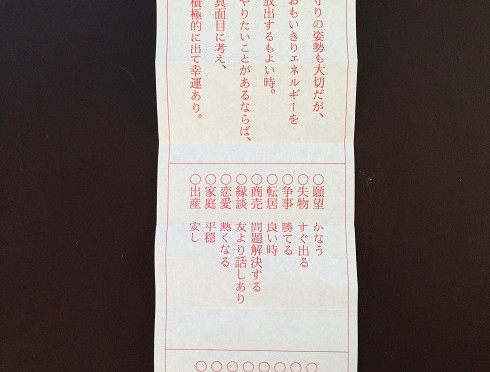 守りの姿勢も大切だが、
おもいきりエネルギーを
放出するもよい時。
やりたいことがあるならば、
真面目に考え、
積極的に出て幸運あり。
○願望 かなう
○失物 すぐ出る
○争事 勝てる
○転居 良い時
○商売 問題解決する
○縁談 友より話しあり
○恋愛 熱くなる
○家庭 平穏
○出産 安し